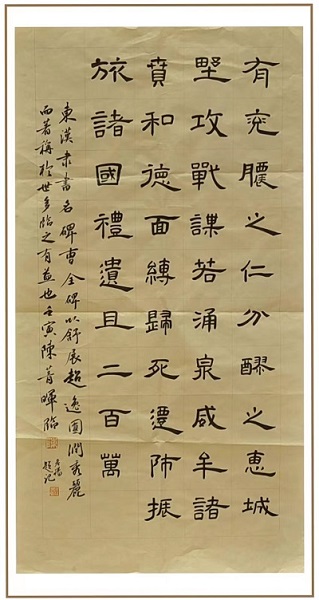 有兗膿之仁分醪之惠城
野攻戰謀若涌泉威牟諸
賁和德面縛歸死還師振
旅諸國禮遺且二百萬
東漢隸書名碑曹全碑以舒展超逸圓潤秀麗
而著稱於世多臨之有益也壬寅陳菁暉臨
題記